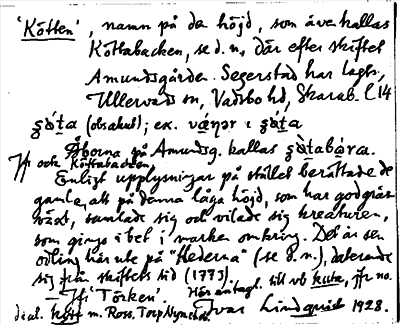 'Kötten', namn på den höjd, som även kallas
Köttabacken, se d. n., där efter skiftet
Amundsgården. Segerstad har lagts,
Ullervads sn, Vadsbo hd, Skarab. l. 14
(obsakul); ex.
Åborna på Amundsg. kallas
Jfr ock Köttabacken.
Enligt upplysningar på stället berättade de
gamle, att på denna låga höjd, som har god gräs-
växt, samlade sig och vilade sig kreaturen,
som gingo i bet i marken omkring. Det är sen
odling här ute på "Hederna" (se d. n.), daterande
sig från skiftets tid (1773).
Jfr 'Törken'. Hör antagl. till vb kuta, jfr no.
dial. m. Ross. Torp Nynorsk. Ivar Lindquist 1928.